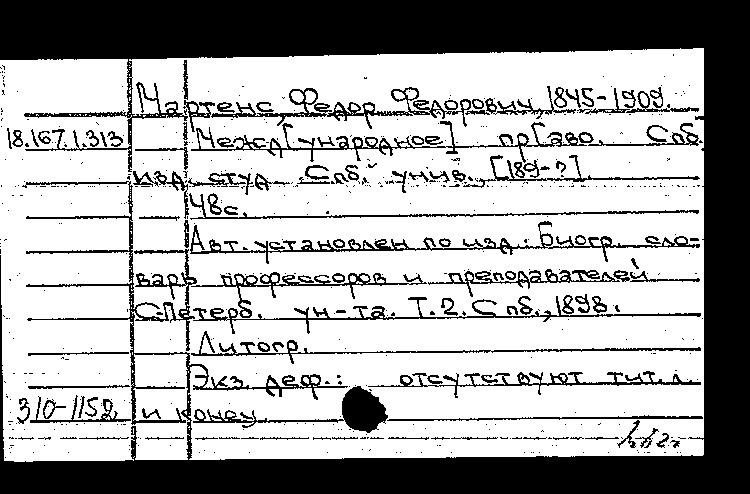 Мартенс, Федор Федорович, 1845-1909.
18.167.1.313 Межд[ународное] пр[аво. Спб.
изд. студ. Спб. унив., [189-?].
48с.
Авт. установлен по изд.: Биогр. сло-
варь профессоров и преподавателей
С.-Петерб. ун-та. Т.2. Спб., 1898.
Литогр.
Экз. деф.: отсутствуют тит. л.
310-1152 и конец